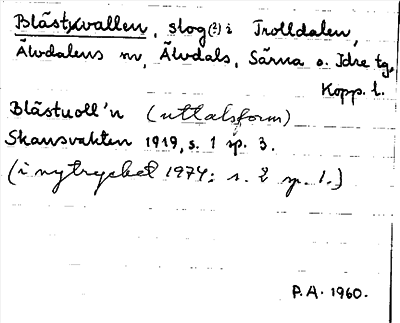 Blästvallen, slog(?) i Trolldalen,
Älvdalens sn, Älvdals, Särna o. Idre tg,
Kopp. l.
Blästuoll'n (uttalsform)
Skansvakten 1919, s. 1 sp. 3.
(i nytrycket 1974: s. 2 sp. 1.)
P.A. 1960.